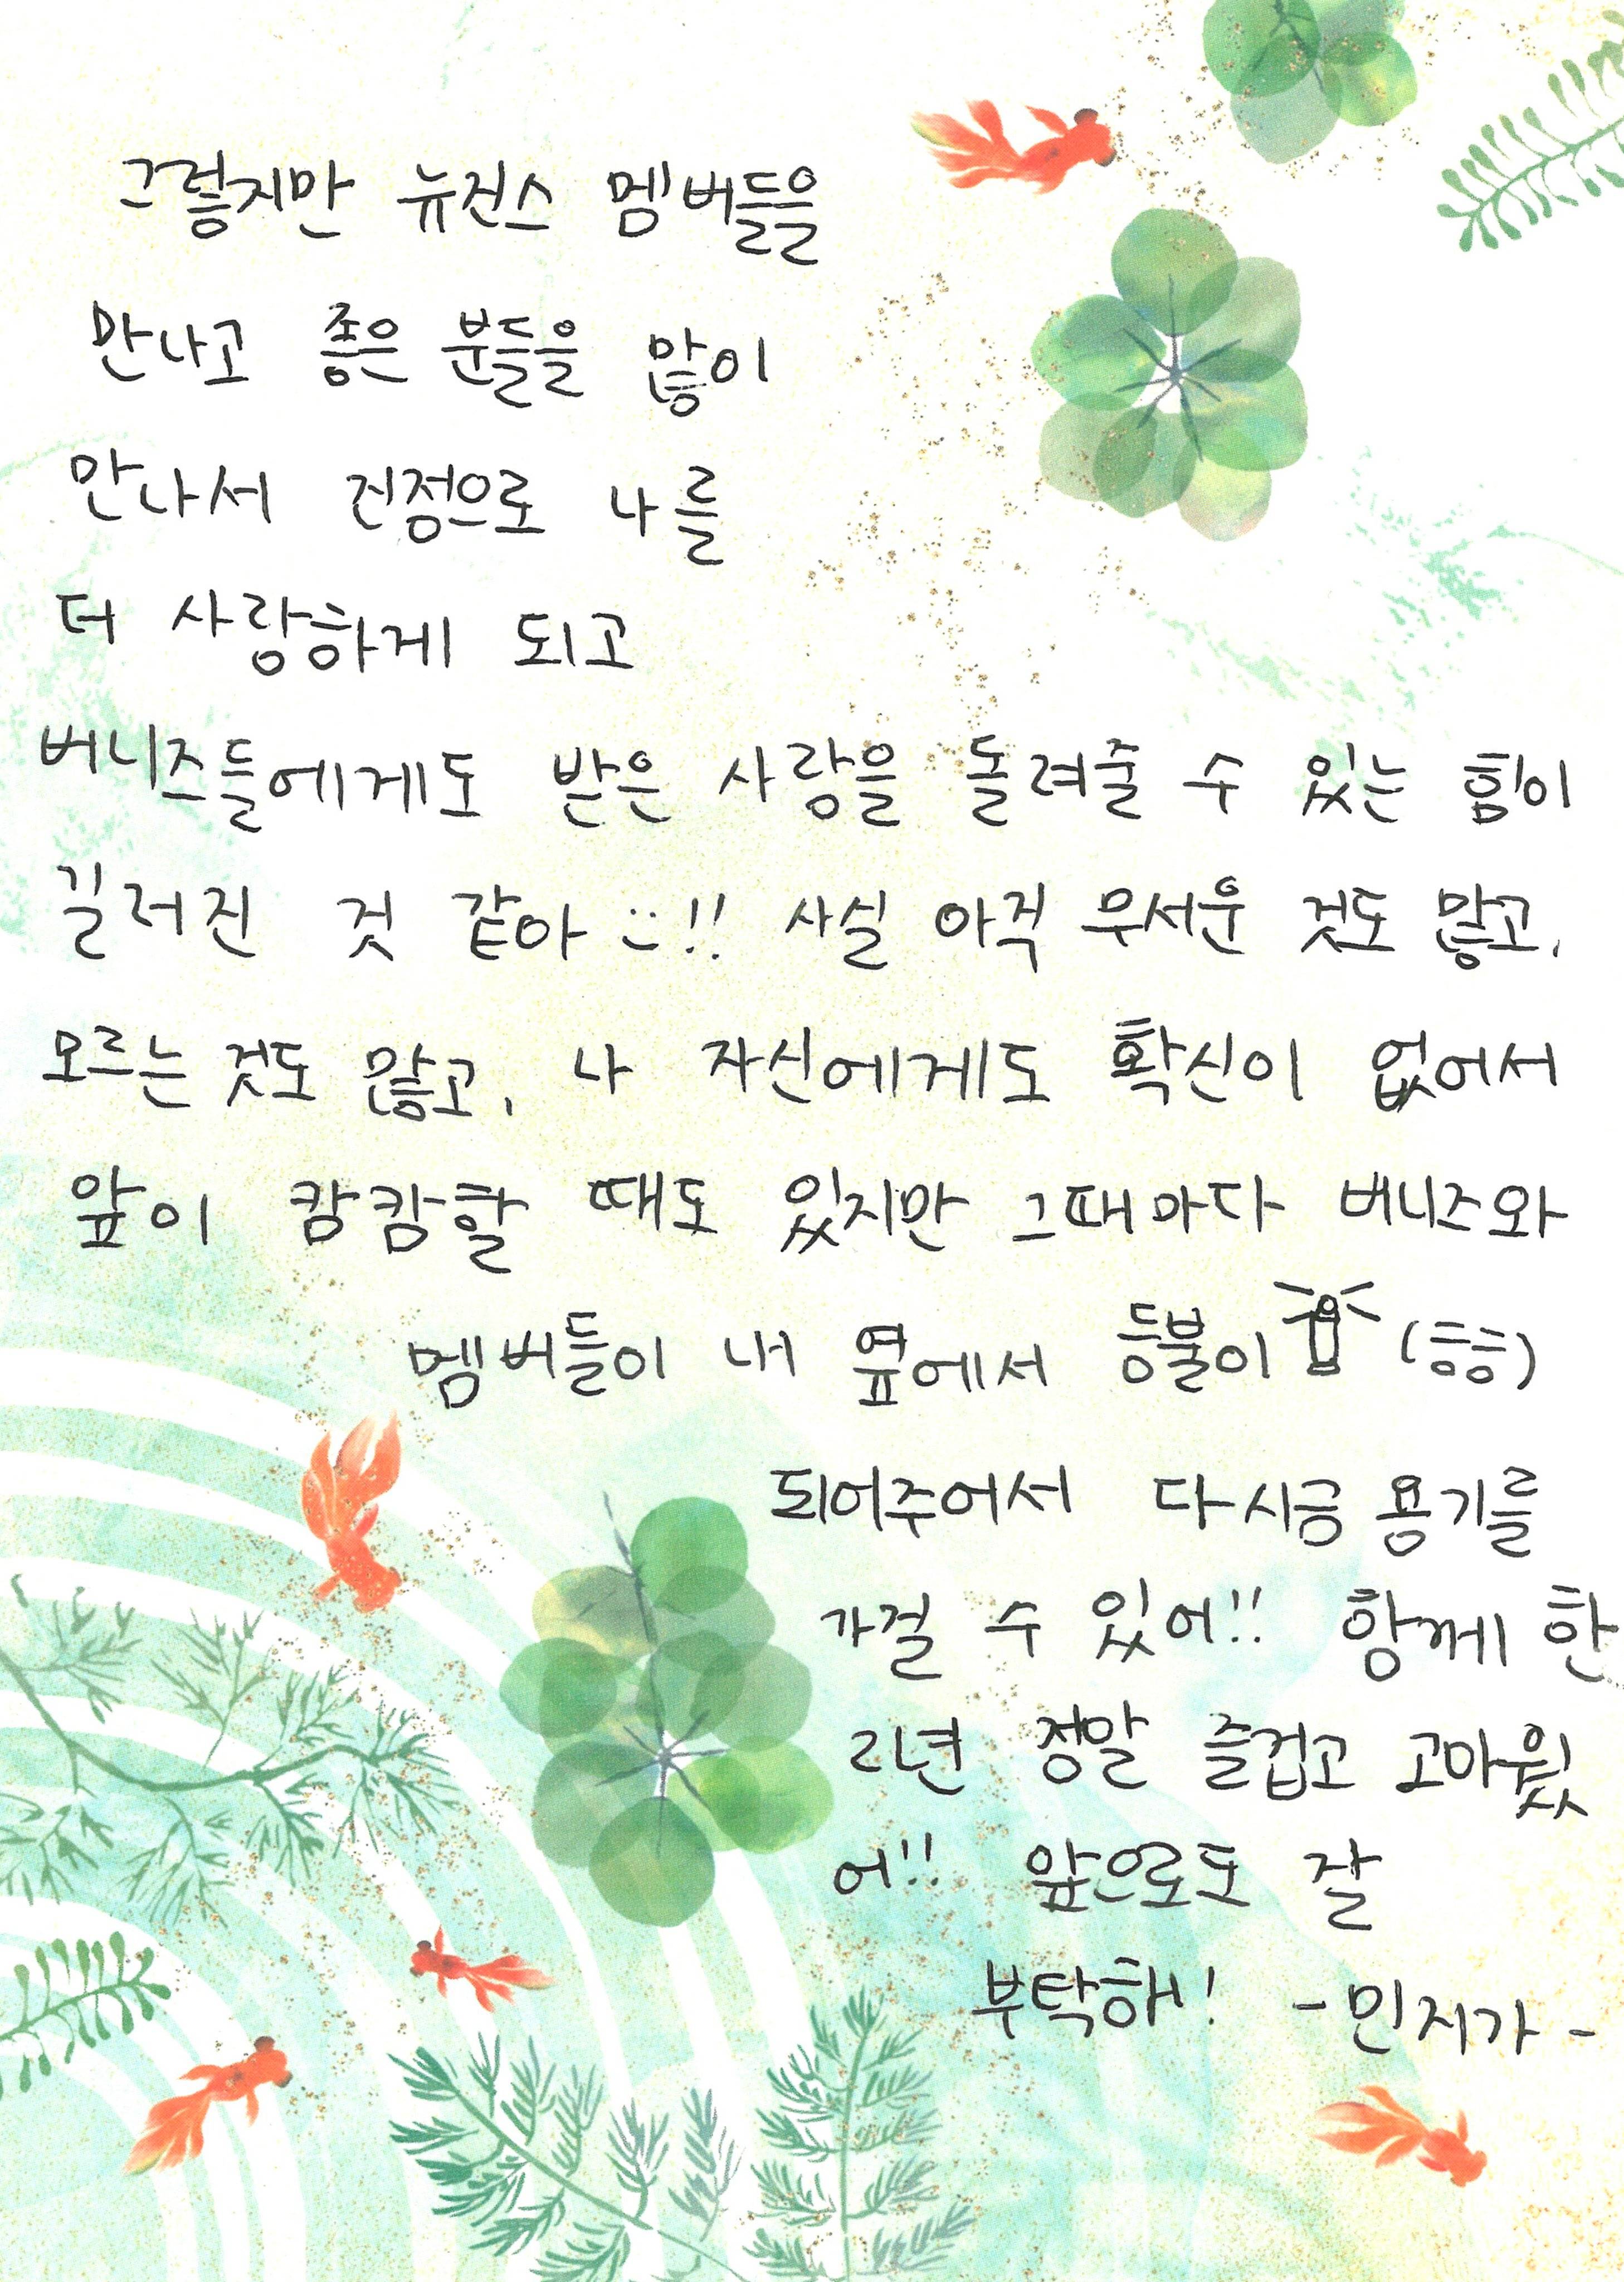 그렇지만 뉴진스 멤버들을
만나고 좋은 분들을 많이
만나서 진정으로 나를
더 사랑하게 되고
버니즈들에게도 받은 사랑을 돌려줄 수 있는 힘이
길러진 것 같아 :) !! 사실 아직 무서운 것도 많고,
모르는 것도 많고, 나 자신에게도 확신이 없어서
앞이 캄캄할 때도 있지만 그때마다 버니즈와
멤버들이 내 옆에서 등불이 (등등)
되어주어서 다시금 용기를
가질 수 있어!! 함께 한
2년 정말 즐겁고 고마웠
어!! 앞으로도 잘
부탁해! -민지가-